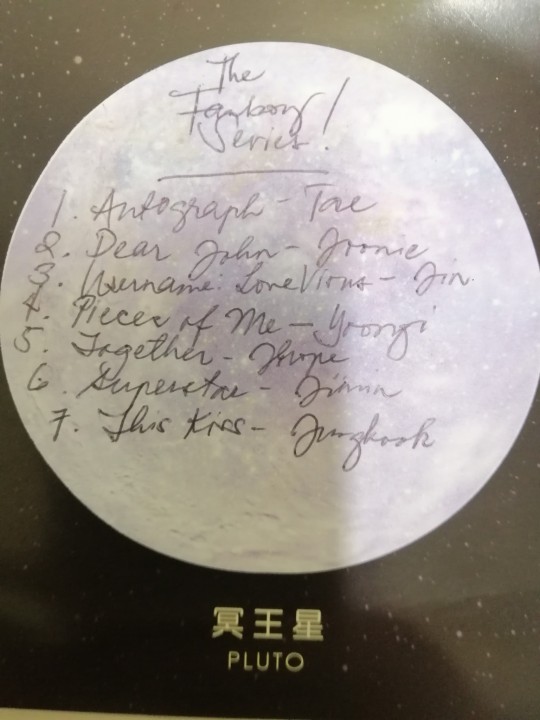 The
Fanboy
Series!
1. Autograph - Tae
2. Dear John - Joonie
3. Username: LoveVirus - Jin
4. Pieces of Me - Yoongi
5. Together - Jhope
6. Superstar - Jimin
7. This Kiss - Jungkook
冥王星
PLUTO